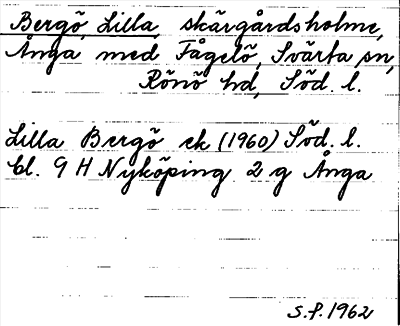 Bergö, Lilla, skärgårdsholme,
Ånga med Fågelö, Svärta sn,
Rönö hd, Söd. l.
Lilla Bergö ek (1960) Söd. l.
bl. 9 H Nyköping 2 g Ånga
S.F. 1962